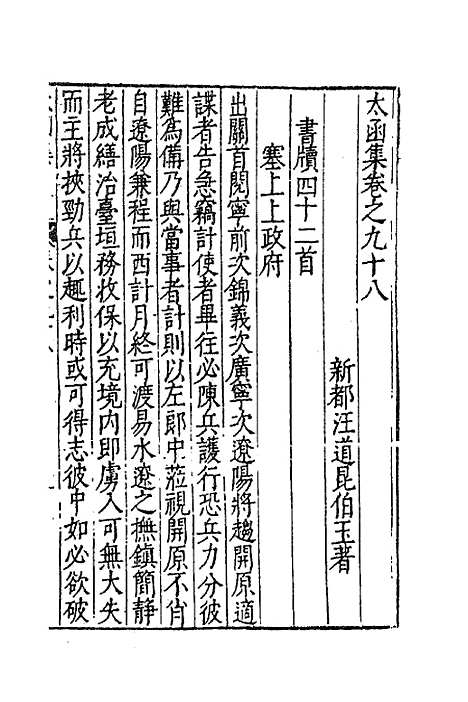 太函集卷之九十八
新都汪道昆伯玉著
書牘四十二首
塞上上政府
出關首閱寧前次錦義次廣寧次遼陽將趨開原適
諜者告急竊計使者畢往必陳兵護行恐兵力分彼
難為備乃與當事者計則以左郎中蒞視開原不肖
自遼陽兼程而西計月終可渡易水遼之撫鎮簡靜
老成繕治臺垣務收保以充境内即虜入可無大失
而主將挾勁兵以趣利時或可得志彼中如必欲破